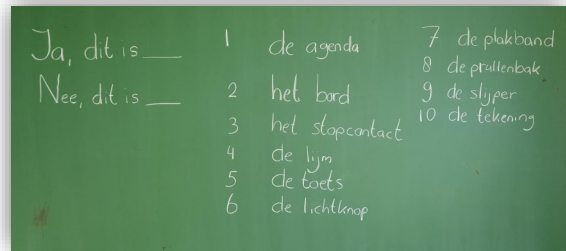 Ja, dit is ___
Nee, dit is ___
1 de agenda
2 het bord
3 het stopcontact
4 de lijm
5 de toets
6 de lichtknop
7 de plakband
8 de prullenbak
9 de slijper
10 de tekening